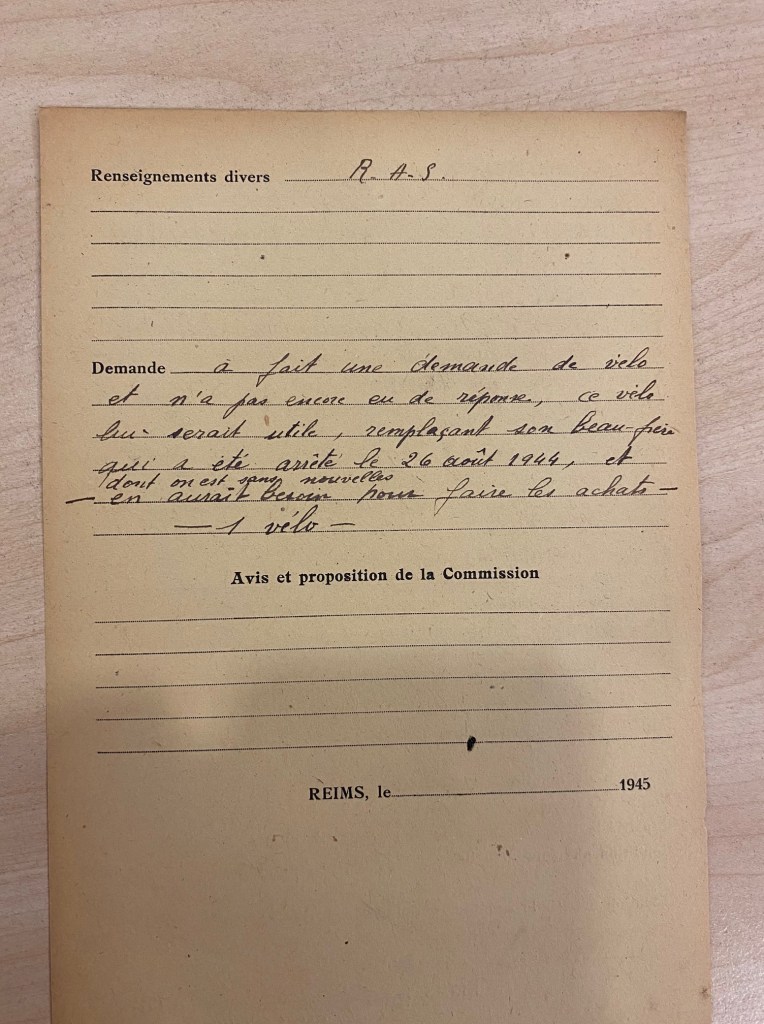 Renseignements divers R. A. S.
Demande à fait une demande de vélo
et n'a pas encore eu de réponse, ce vélo
lui serait utile, remplaçant son beau-frère
qui a été arrêté le 26 août 1944, et
dont on est sans nouvelles
— en aurait besoin pour faire les achats —
— 1 vélo —
Avis et proposition de la Commission
REIMS, le 1945